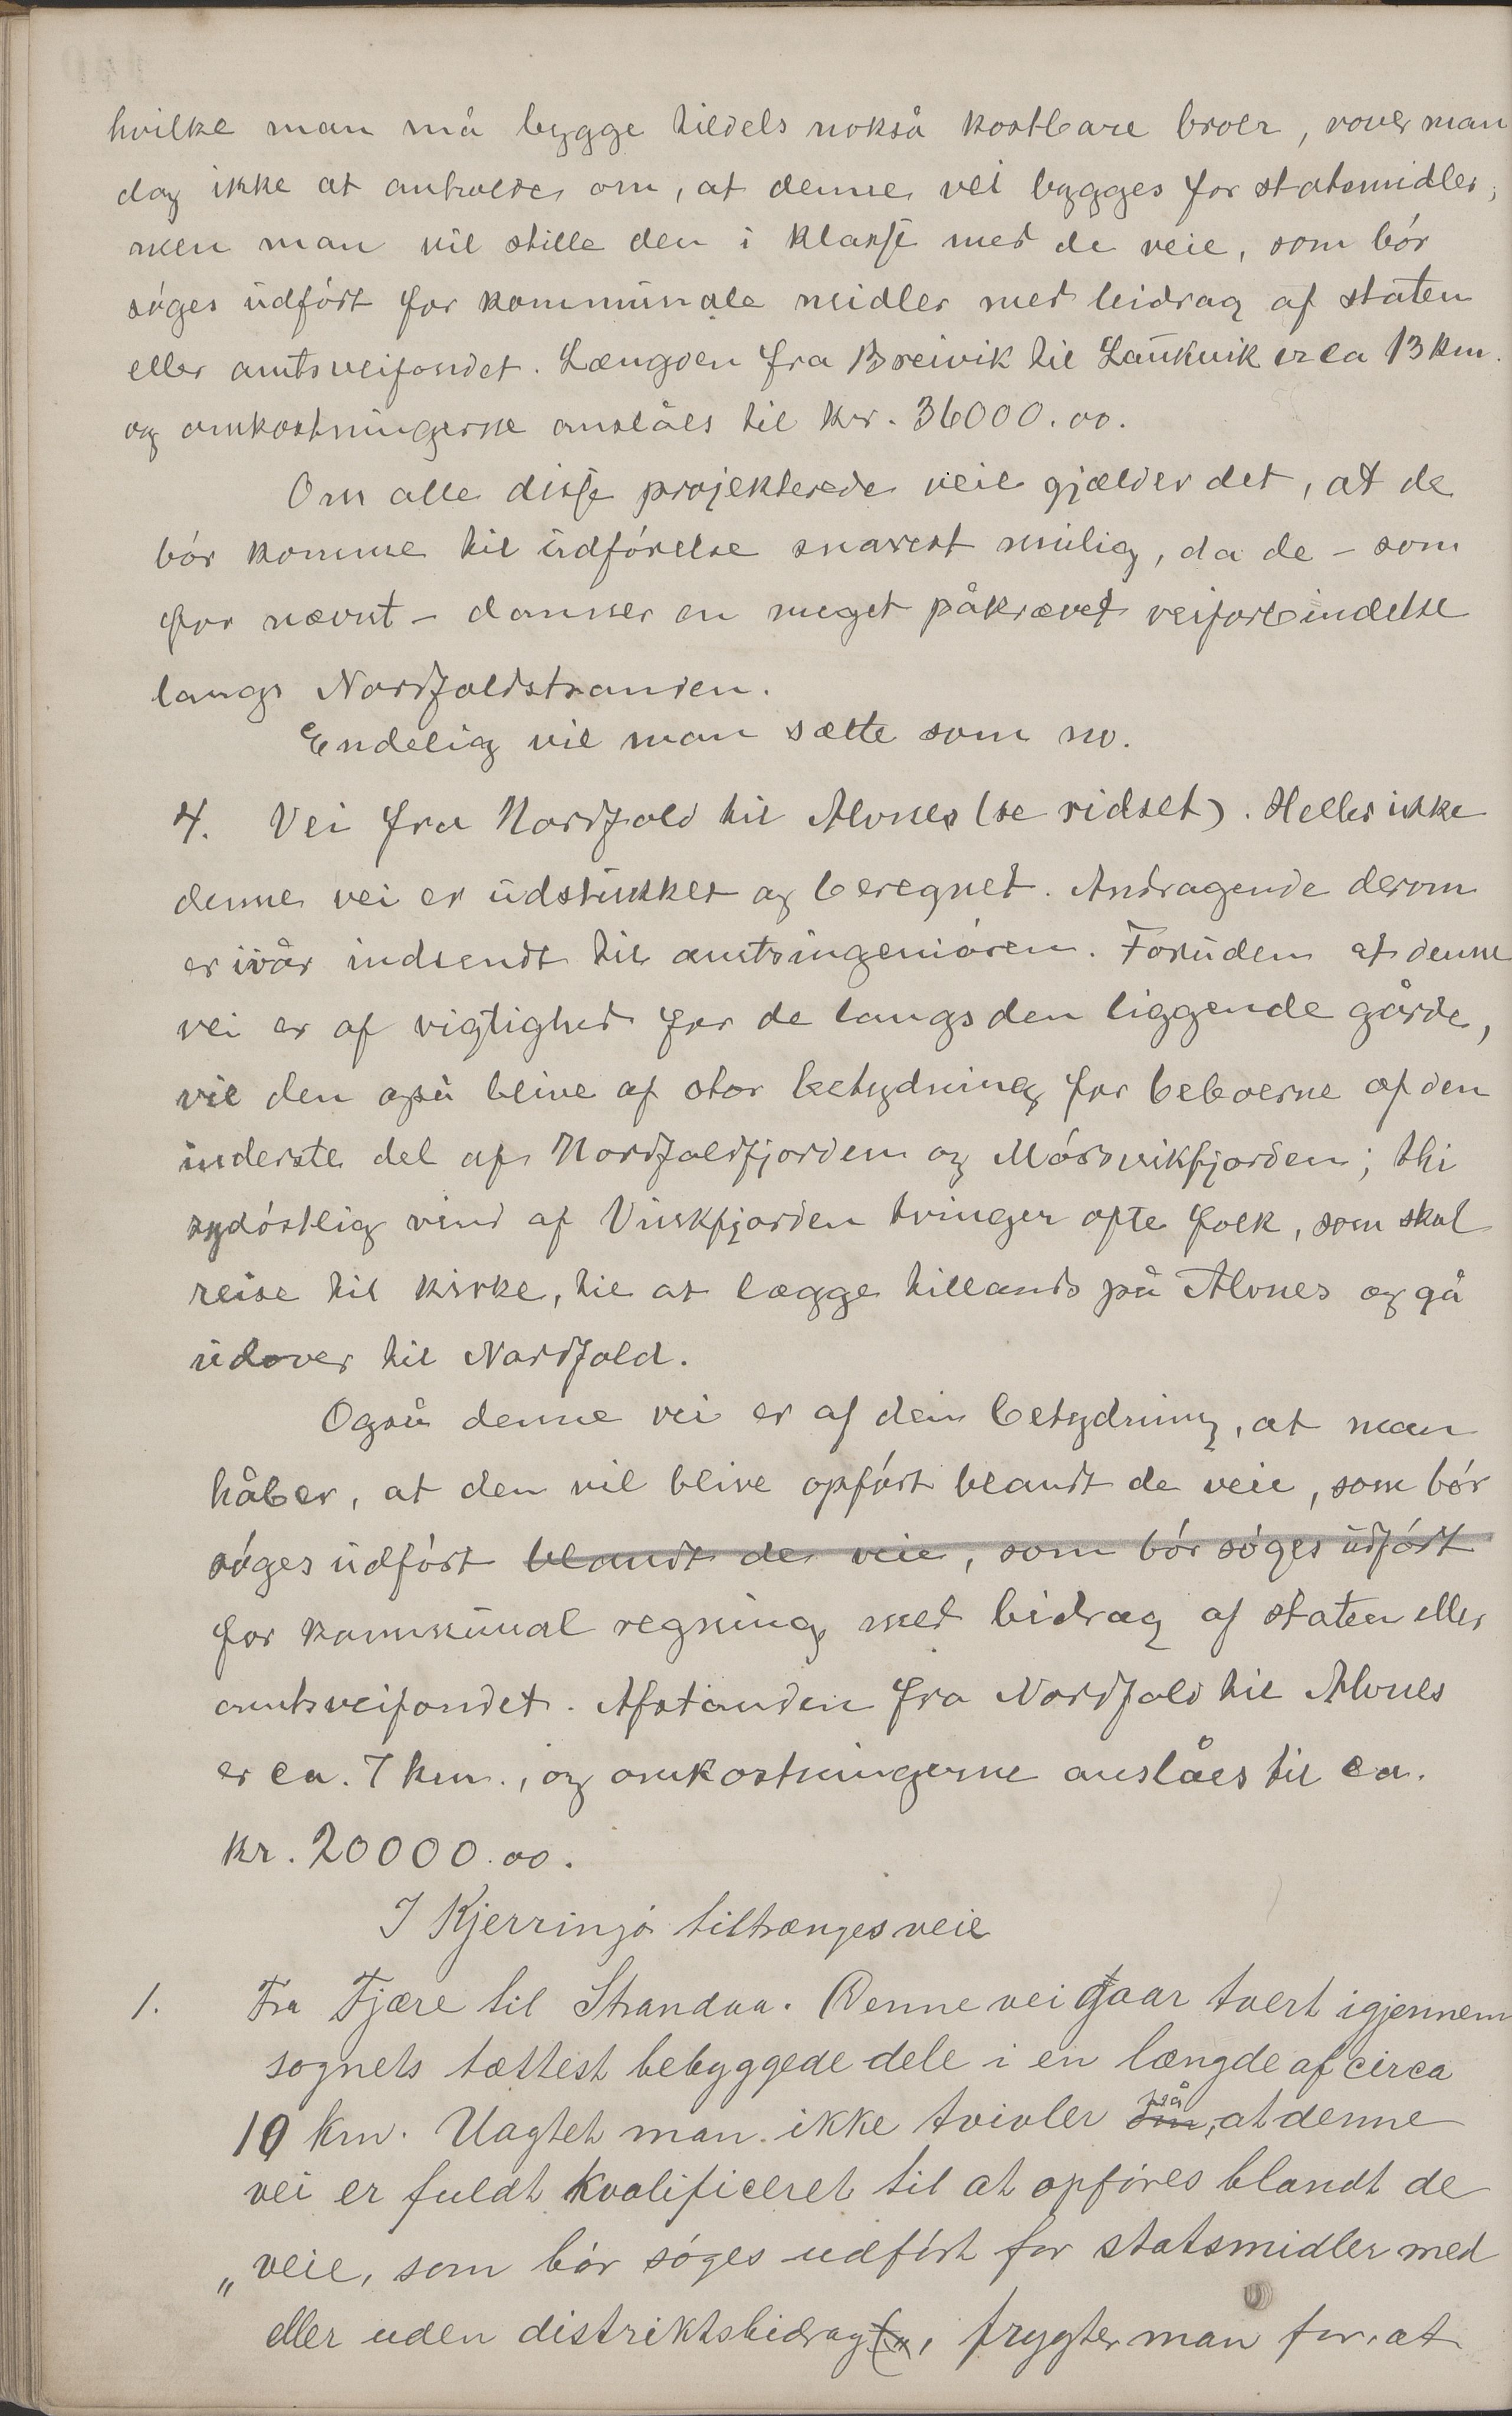 hvilke man må bygge tildels nokså kostbare broer, vover man
dog ikke at anholde om, at denne vei bygges for statsmidler,
men man vil stille den i klasse med de veie, som bór
sóges udfórt for kommunale midler med bidrag af staten
eller amtsveifondet. Længden fra Breivik til Laukvik er ca 13 km.
og omkostningerne anslåes til kr. 36000.00.
Om alle disse projekterede veie gjælder det, at de
bór komme til udfórelse snarest mulig, da de – som
fór nævnt – danner en meget påkrævet veiforbindelse
langs Nordfoldstranden.
Endelig vil man sætte som no.
4. Vei fra Nordfold til Alvnes (se ridset). Heller ikke
denne vei er udstukket og beregnet. Andragende derom
er iår indsendt til amtsingenióren. Foruden at denne
vei er af vigtighed for de langs den liggende gårde,
vil den også blive af stor betydning for beboerne af den
inderste del af Nordfoldfjorden og Mórsvikfjorden; thi
sydóstlig vind af Vinkfjorden tvinger ofte folk, som skal
reise til kirke, til at lægge tillands på Alvnes og gå
udover til Nordfold.
Også denne vei er af den betydning, at man
håber, at den vil blive opfórt blandt de veie, som bór
sóges udfórt blandt de veie, som bór sóges udfórt
for kommunal regning med bidrag af staten eller
amtsveifondet. Afstanden fra Nordfold til Alvnes
er ca. 7 km., og omkostningerne anslåes til ca.
kr. 20000.00.
I Kjerringó tiltrænges veie
1. Fra Fjære til Strandaa. Denne vei gaar tvert igjennem
sognets tættest bebyggede dele i en længde af circa
10 km. Uagtet man ikke tvivler om på, at denne
vei er fuldt kvalificeret til at opfóres blandt de
„veie, som bór sóges udfórt for statsmidler med
eller uden distriktsbidrag", frygter man for, at